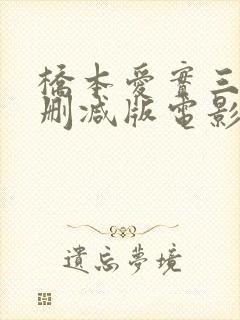 橋本愛實三
刪减版電影
遺忘夢境